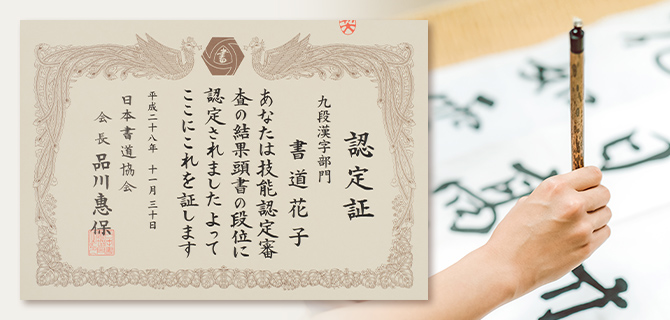 認定証
九段漢字部門
書道花子
あなたは技能認定審
査の結果頭書の段位に
認定されましたよって
ここにこれを証します
平成二十八年 十一月 三十日
日本書道協会
会長 品川惠保
書